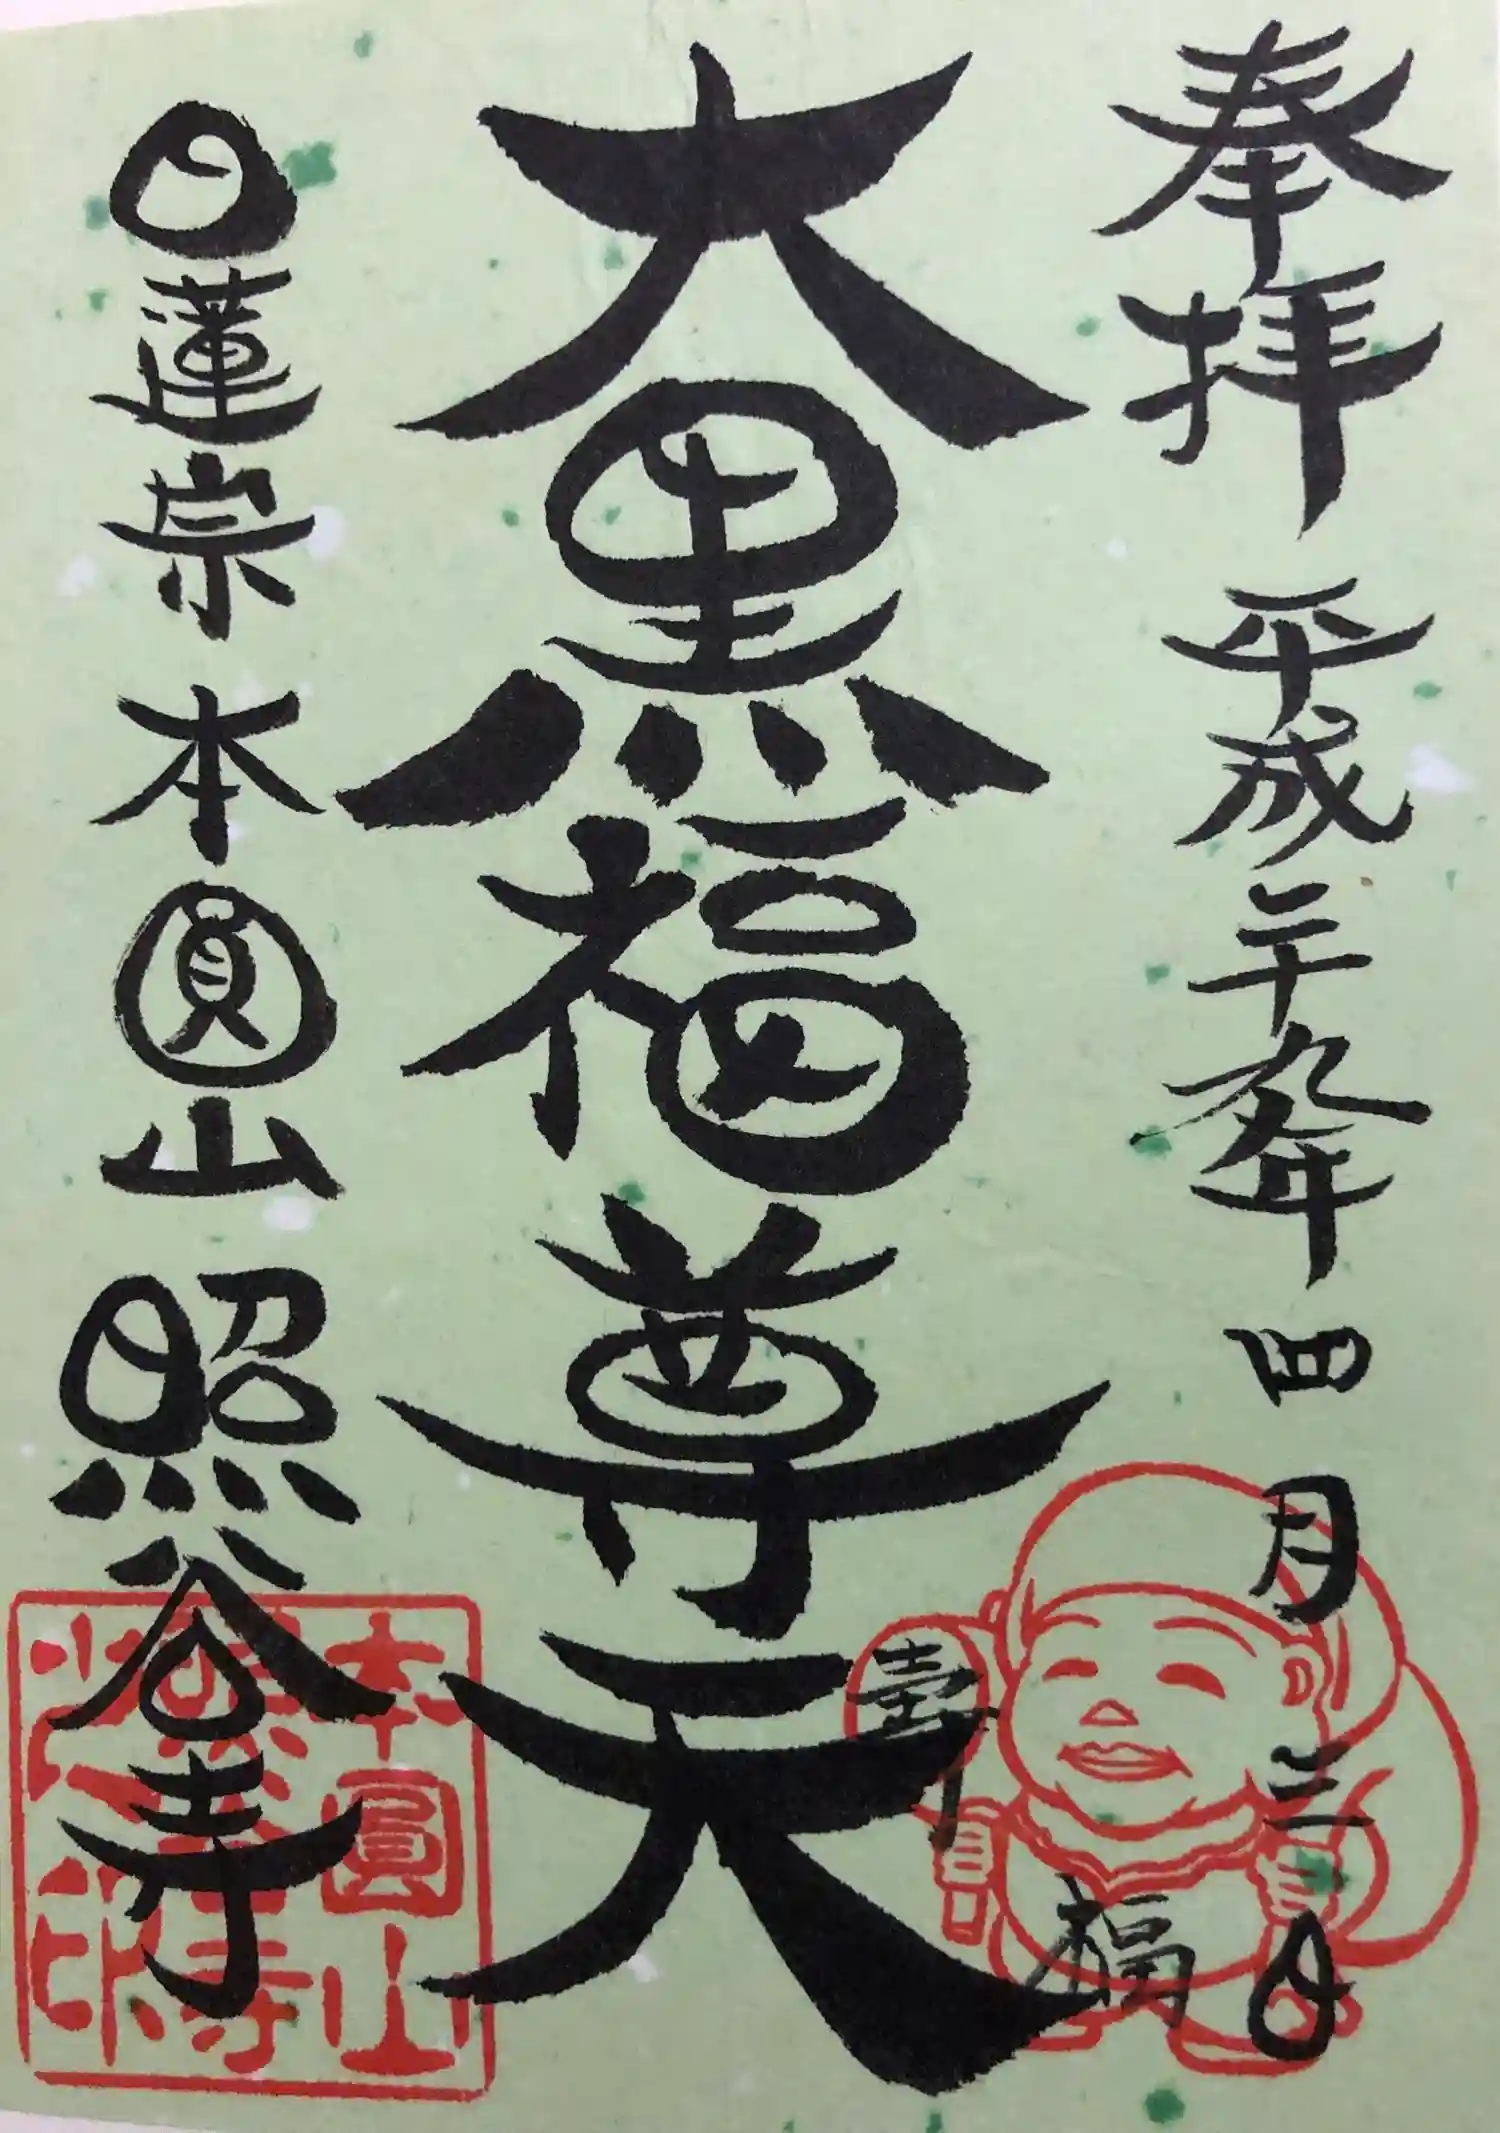 奉拝 平成二十九年四月三日
大黒福尊天
壽
福
日蓮宗 本圓山 照谷寺
本圓山
寺
印